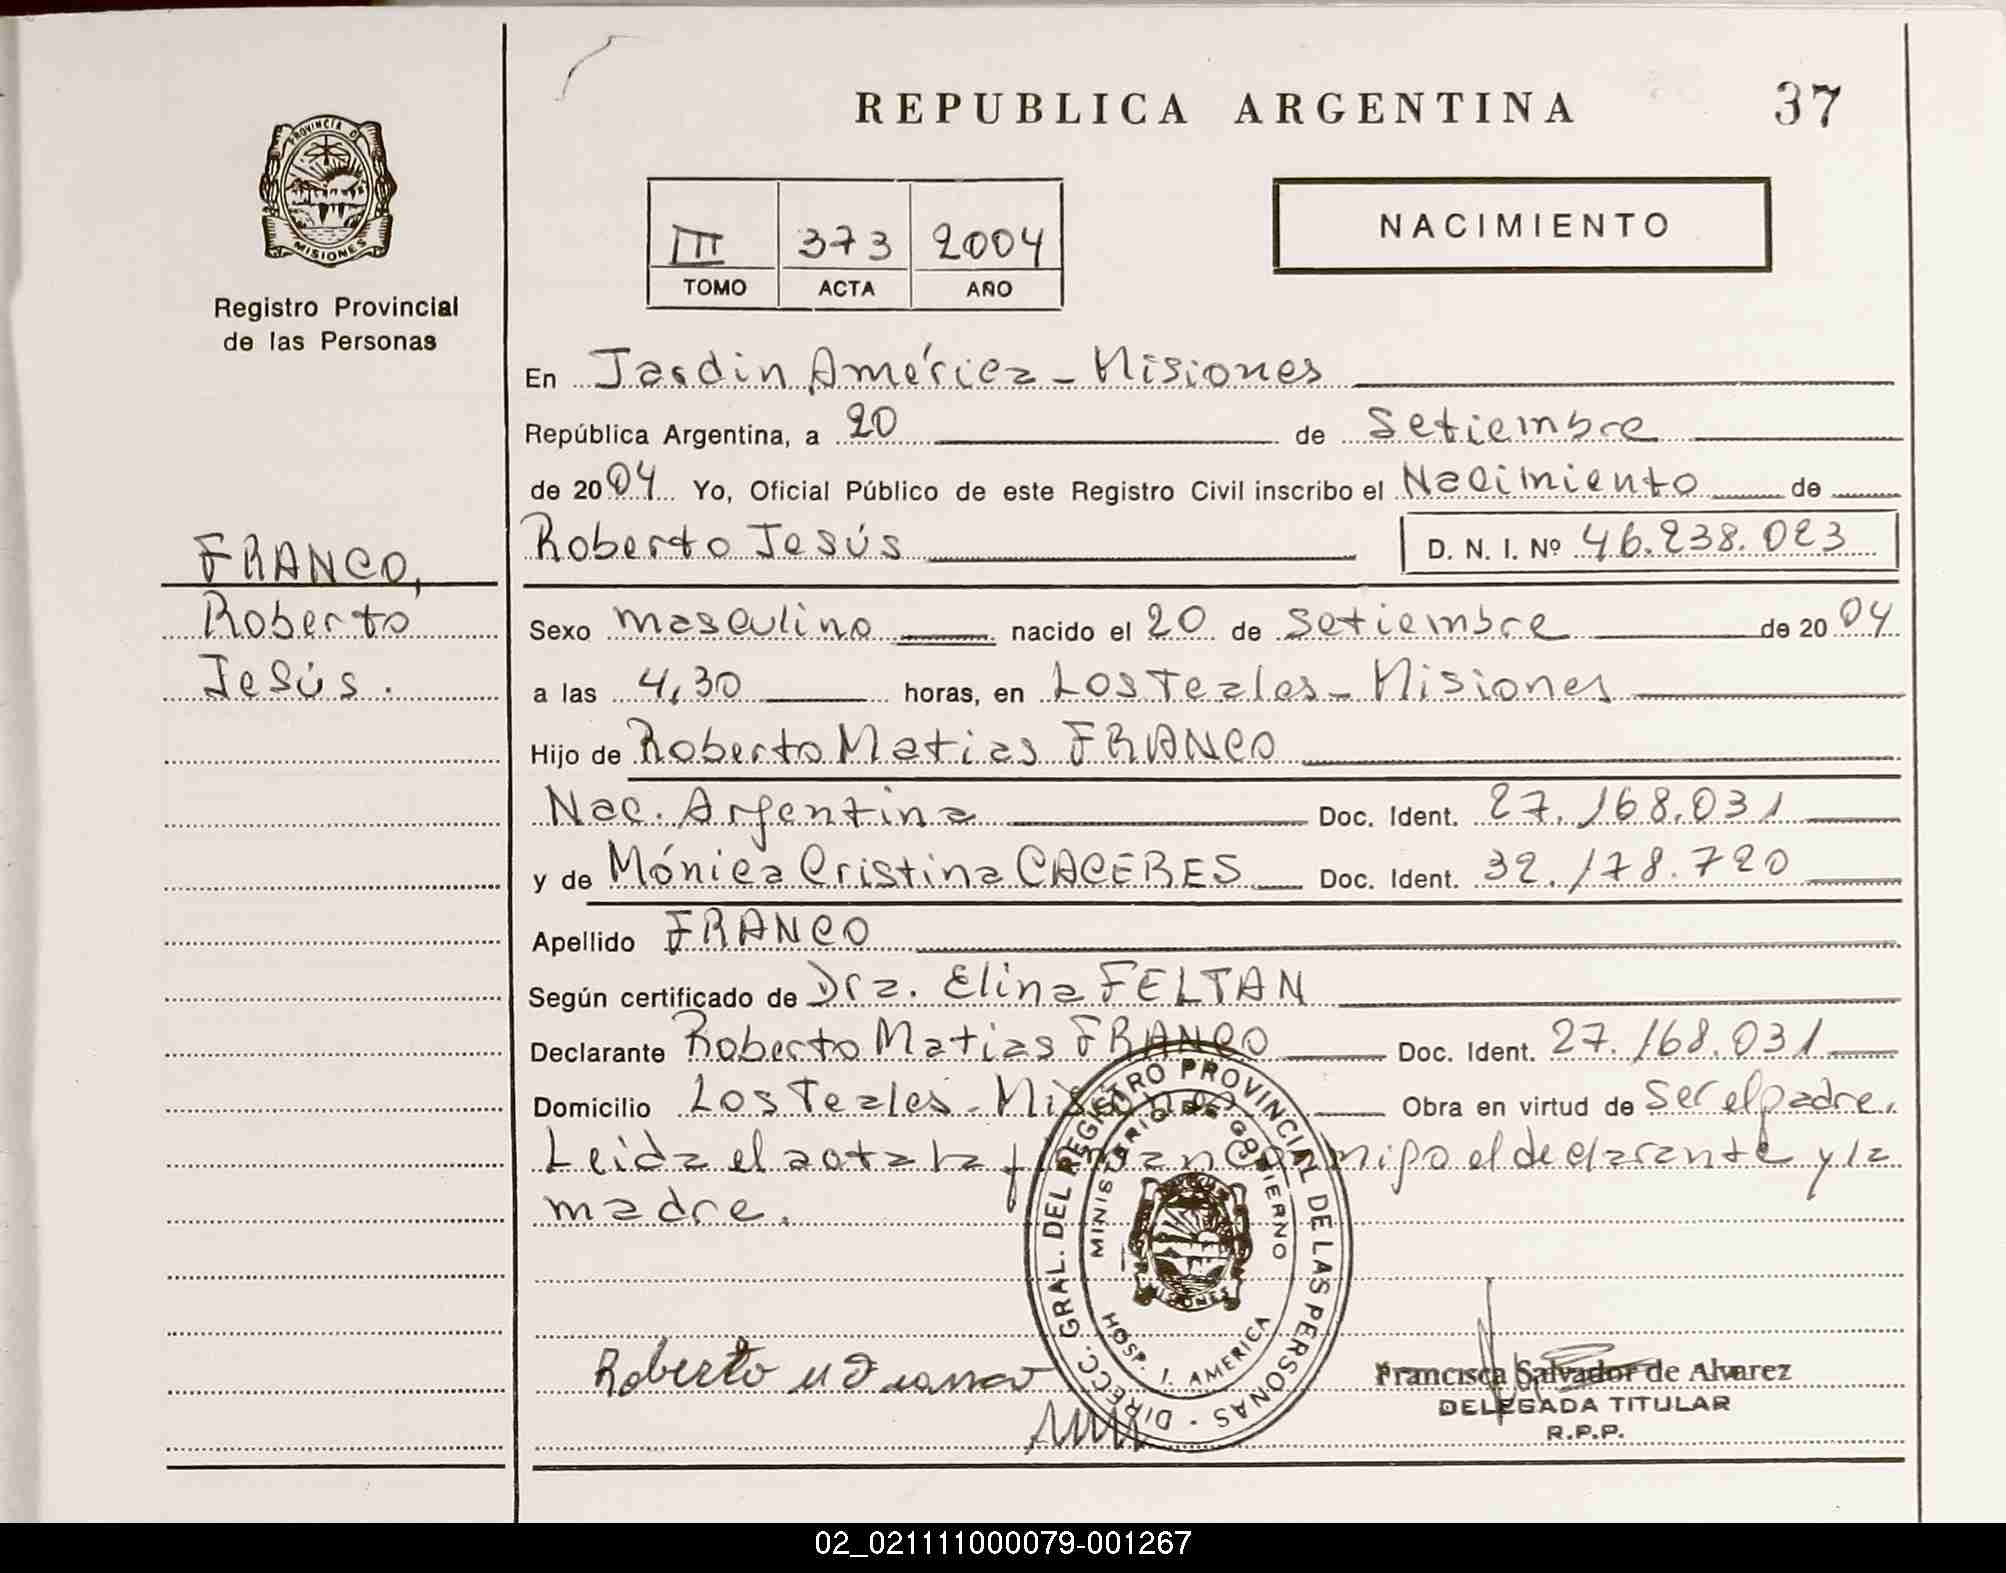 REPUBLICA ARGENTINA
37
PROVINCIA DE
MISIONES
Registro Provincial
de las Personas
III 373 2004
TOMO ACTA AÑO
NACIMIENTO
En Jardin América - Misiones
República Argentina, a 20 de Setiembre
de 2004 Yo, Oficial Público de este Registro Civil inscribo el Nacimiento de
Roberto Jesús D. N. I. Nº 46.238.023
FRANCO,
Roberto
Jesús.
Sexo masculino nacido el 20 de Setiembre de 2004
a las 4,30 horas, en Los Teales - Misiones
Hijo de Roberto Matias FRANCO
Nac. Argentina Doc. Ident. 27.168.031
y de Mónica Cristina CACERES Doc. Ident. 32.178.720
Apellido FRANCO
Según certificado de Dra. Elina FELTAN
Declarante Roberto Matias FRANCO Doc. Ident. 27.168.031
Domicilio Los Teales - Misiones Obra en virtud de ser el padre.
Leida el acta la firman conmigo el declarante y la
madre.
DIRECC. GRAL. DEL REGISTRO PROVINCIAL DE LAS PERSONAS -
MINISTERIO DE GOBIERNO
MISIONES
HOSP. I. AMERICA
Roberto M Franco
Francisca Salvador de Alvarez
DELEGADA TITULAR
R.P.P.
02_021111000079-001267